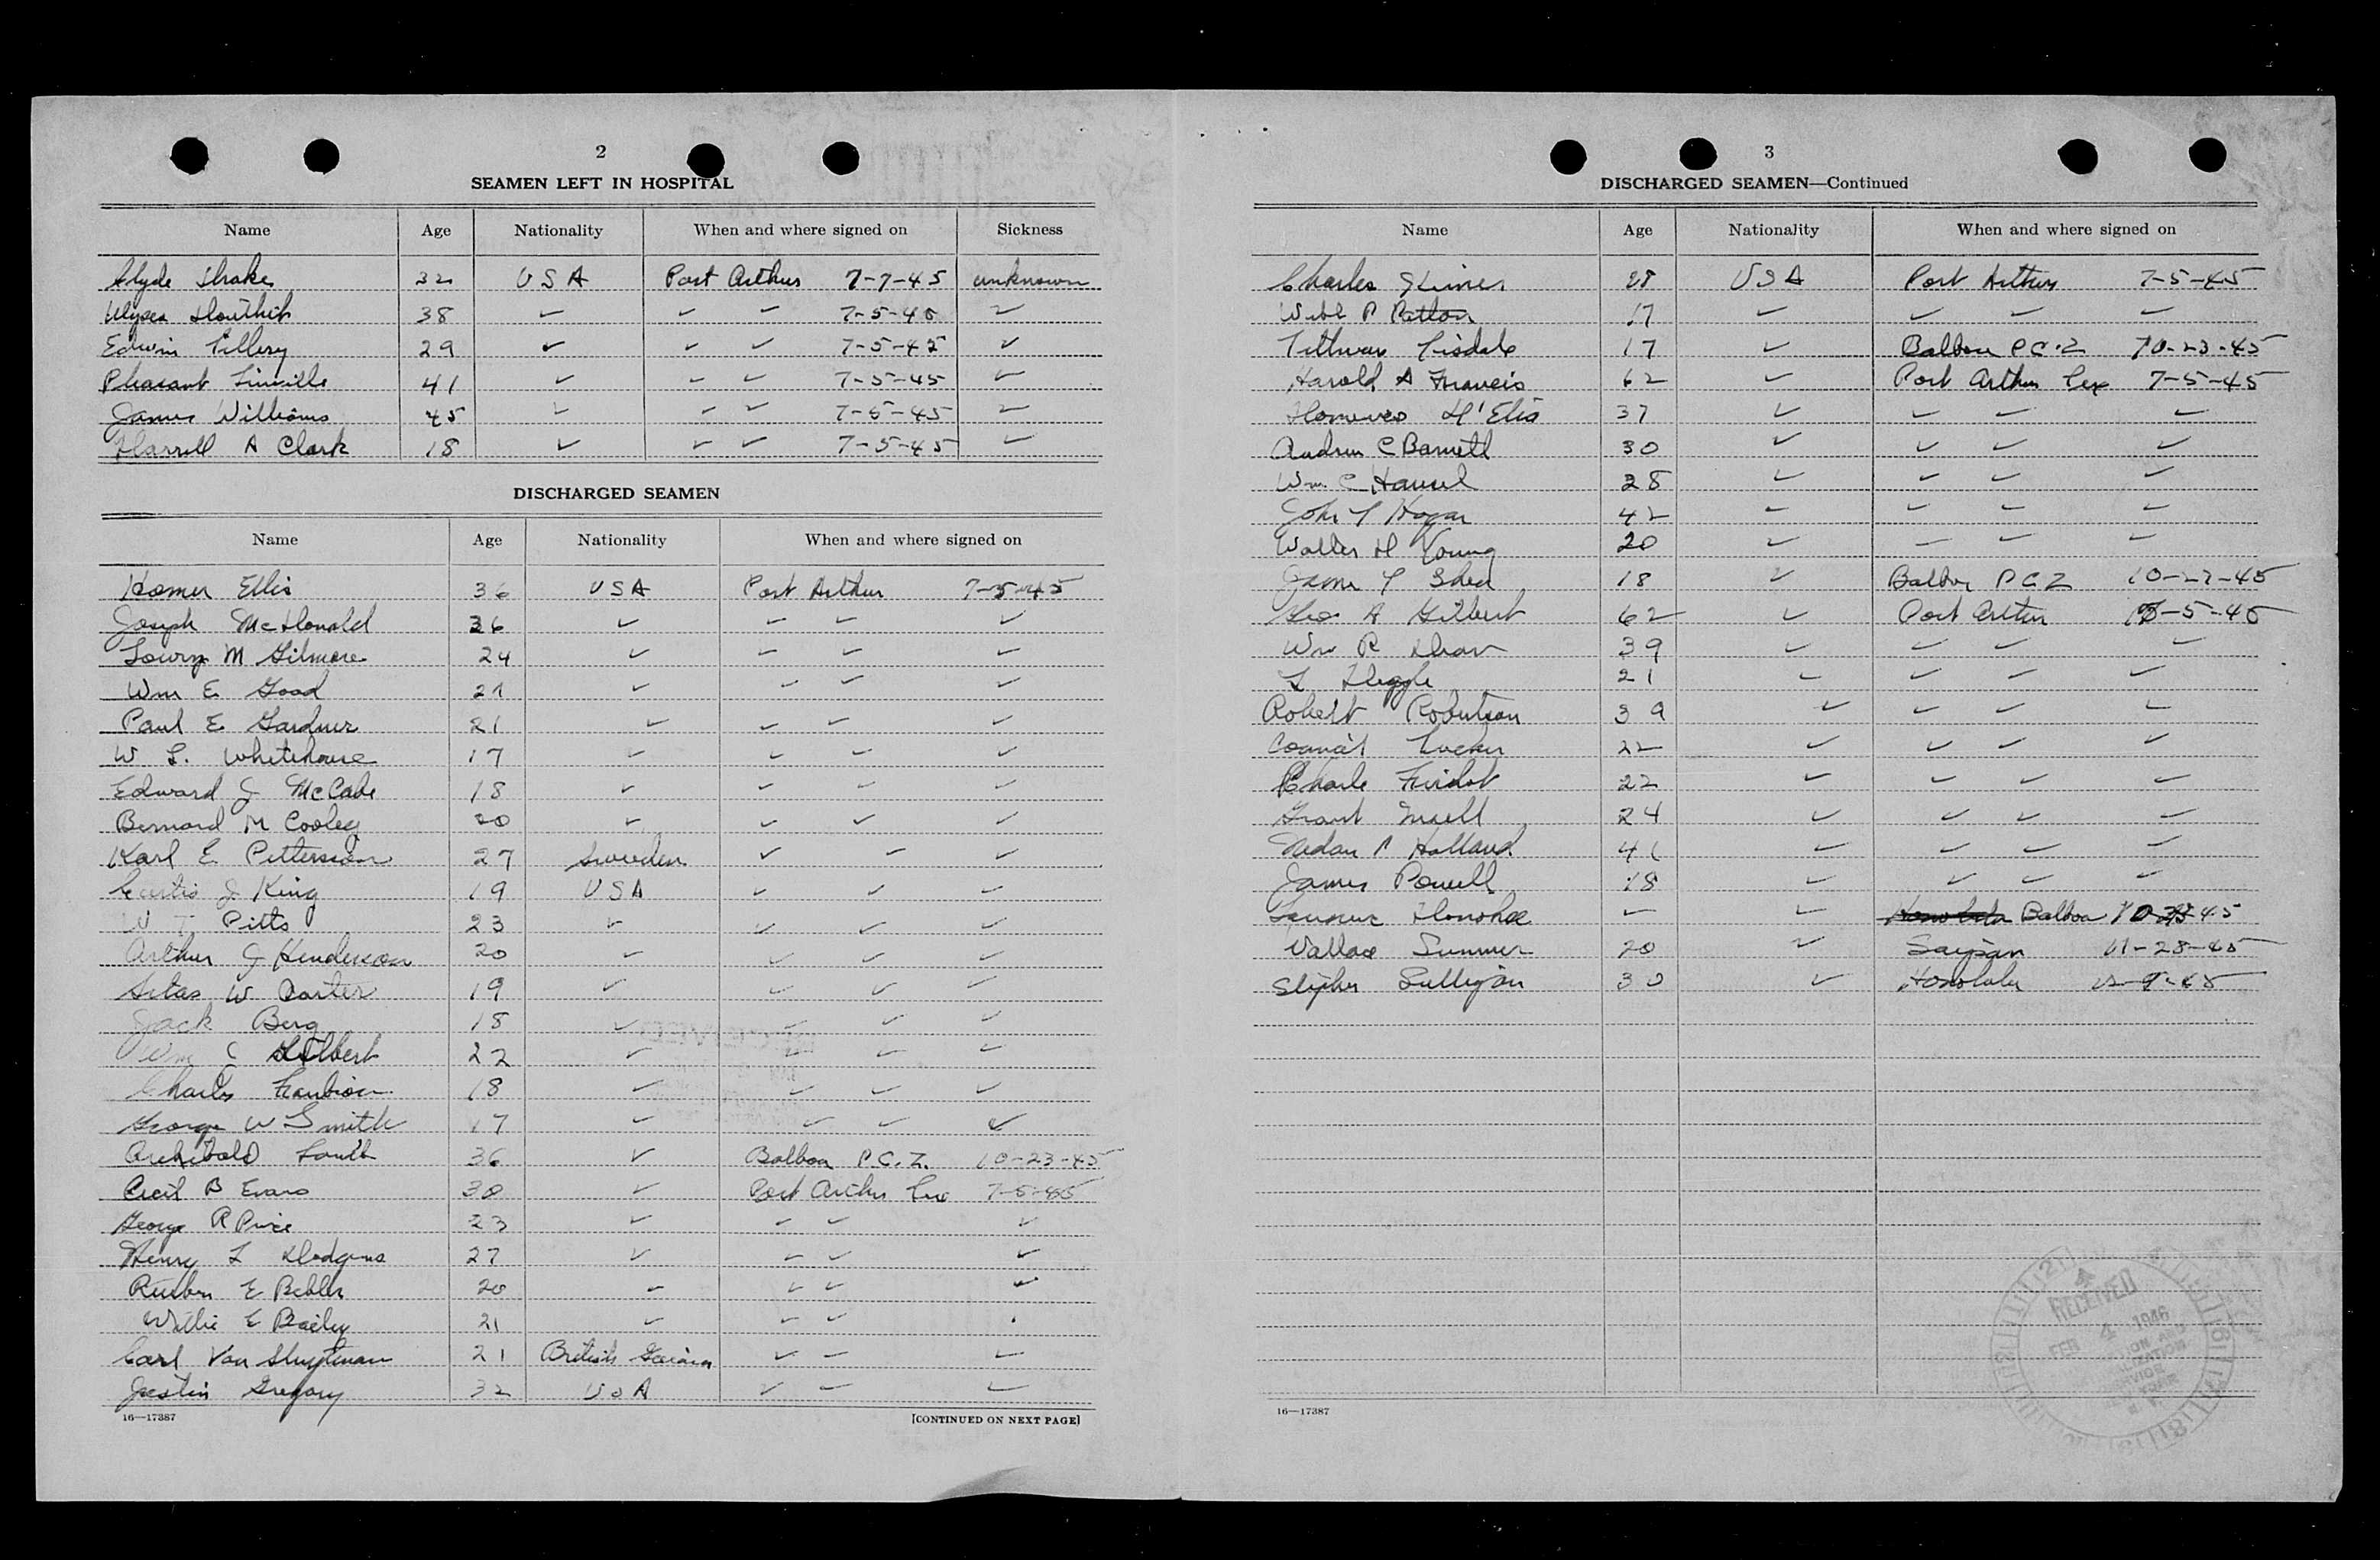 2
SEAMEN LEFT IN HOSPITAL
Name Age Nationality When and where signed on Sickness
Clyde Drake 32 USA Port Arthur 7-7-45 unknown
38 ✓ ✓ ✓ 7-5-45 ✓
Edwin Tillery 29 ✓ ✓ ✓ 7-5-45 ✓
Pleasant Linville 41 ✓ ✓ ✓ 7-5-45 ✓
James Williams 45 ✓ ✓ ✓ 7-5-45 ✓
Harrell A Clark 18 ✓ ✓ ✓ 7-5-45 ✓
DISCHARGED SEAMEN
Name Age Nationality When and where signed on
Homer Ellis 36 USA Port Arthur 7-5-45
Joseph McDonald 36 ✓ ✓ ✓ ✓
Lowry M Gilmore 24 ✓ ✓ ✓ ✓
Wm E Good 21 ✓ ✓ ✓ ✓
Paul E Gardner 21 ✓ ✓ ✓ ✓
W L. Whitehouse 17 ✓ ✓ ✓ ✓
Edward J McCabe 18 ✓ ✓ ✓ ✓
Bernard M Cooley 20 ✓ ✓ ✓ ✓
Karl E Pettersson 27 Sweden ✓ ✓ ✓
Curtis J King 19 USA ✓ ✓ ✓
W T Pitts 23 ✓ ✓ ✓ ✓
Arthur J Henderson 20 ✓ ✓ ✓ ✓
Silas W Carter 19 ✓ ✓ ✓ ✓
Jack Berg 18 ✓ ✓ ✓ ✓
Wm C Gilbert 22 ✓ ✓ ✓ ✓
Charles Faubion 18 ✓ ✓ ✓ ✓
George W Smith 17 ✓ ✓ ✓ ✓
Archibald 36 ✓ Balboa P.C.Z. 10-23-45
Cecil B Evans 30 ✓ Port Arthur Tex 7-5-45
George R Price 23 ✓ ✓ ✓ ✓
Henry L Hodgens 27 ✓ ✓ ✓ ✓
Reuben E 20 ✓ ✓ ✓ ✓
Willie E Bailey 21 ✓ ✓ ✓
Carl Van Sluytman 21 British Guiana ✓ ✓ ✓
Justin Gregory 32 USA ✓ ✓ ✓
16—17387 [CONTINUED ON NEXT PAGE]
3
DISCHARGED SEAMEN—Continued
Name Age Nationality When and where signed on
Charles 28 USA Port Arthur 7-5-45
Webb P Patton 17 ✓ ✓ ✓ ✓
Tillman Tisdale 17 ✓ Balboa P.C.Z 10-23-45
Harold A Francis 62 ✓ Port Arthur Tex 7-5-45
D'Elia 37 ✓ ✓ ✓ ✓
Andrew C Barnett 30 ✓ ✓ ✓ ✓
Wm. C 28 ✓ ✓ ✓ ✓
John T Hogan 42 ✓ ✓ ✓ ✓
Walter H Young 20 ✓ ✓ ✓ ✓
James T Shea 18 ✓ Balboa P.C.Z
Geo A Gilbert 62 ✓ Port Arthur
Wm R Dean 39 ✓ ✓ ✓ ✓
L 21 ✓ ✓ ✓ ✓
Robert Robertson 39 ✓ ✓ ✓ ✓
Tucker 22 ✓ ✓ ✓ ✓
22 ✓ ✓ ✓ ✓
Grant 24 ✓ ✓ ✓ ✓
Holland 41 ✓ ✓ ✓ ✓
James Powell 18 ✓ ✓ ✓ ✓
Donohoe ✓ ✓ Balboa
Wallace Sumner 20 ✓ Saipan 11-28-45
30 ✓ Honolulu 12-9-45
16—17387
RECEIVED
FEB 4 1946